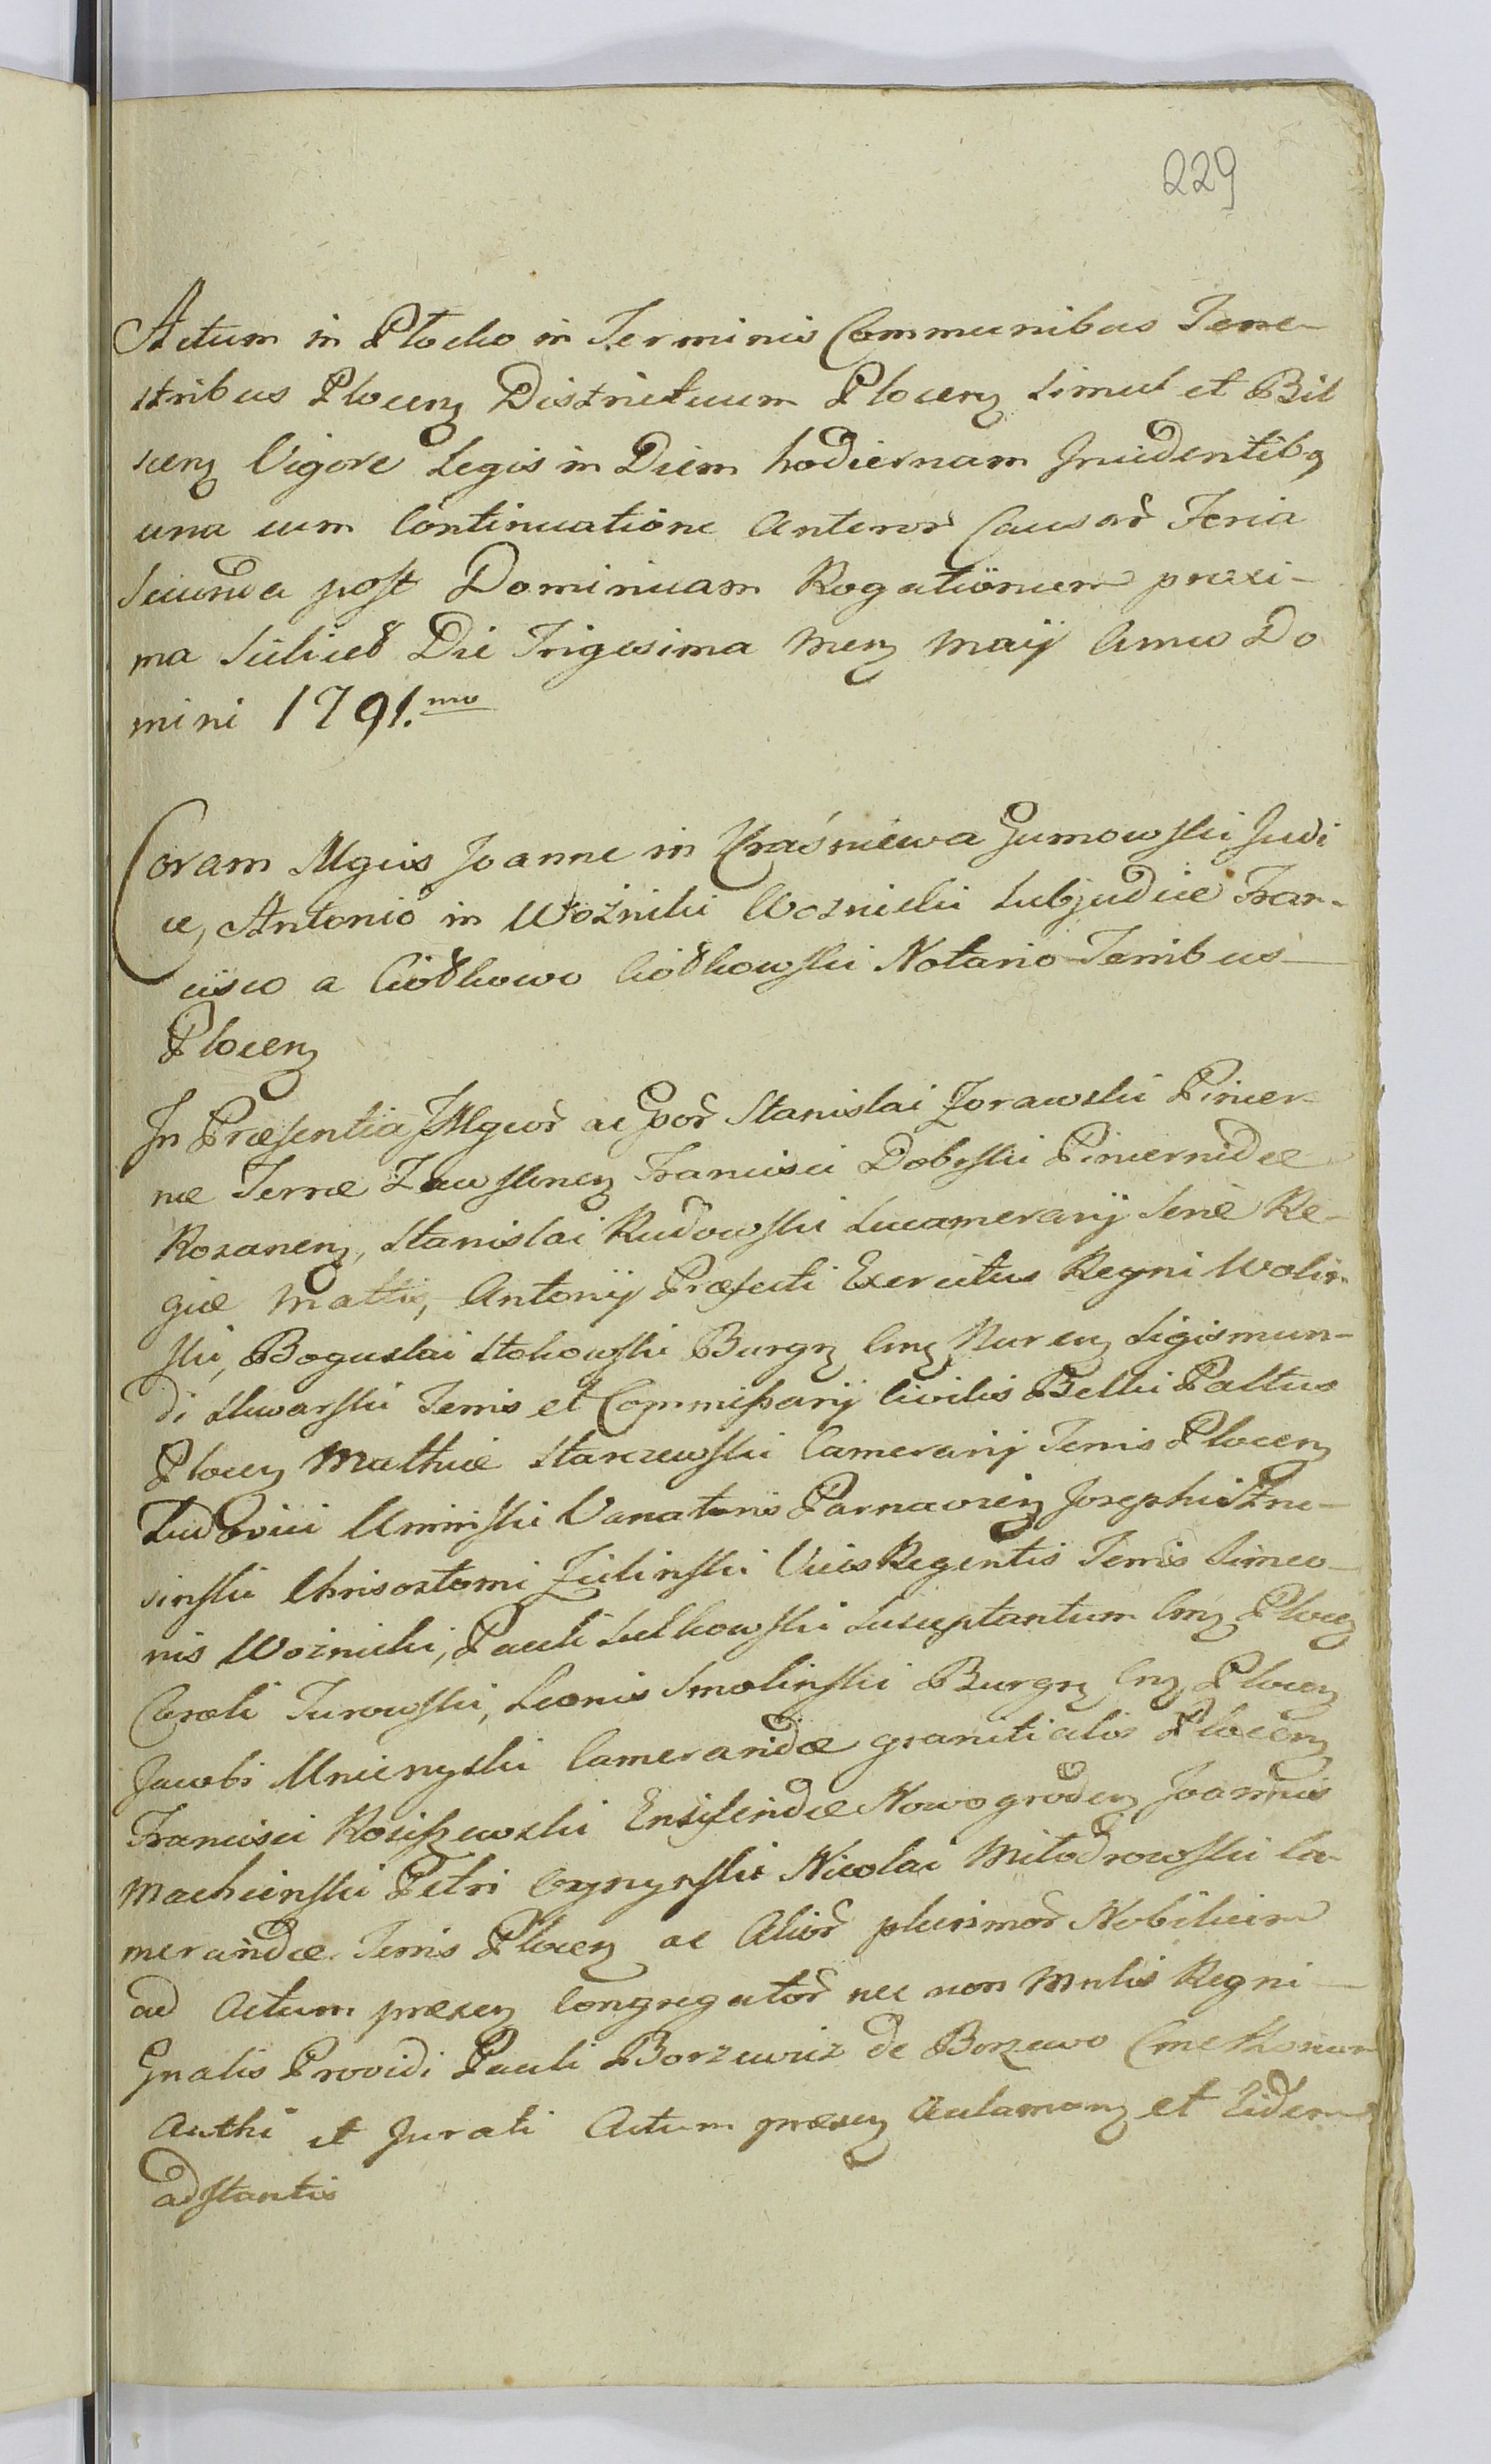 229
Actum in Płocko in Terminis Communibus Terre-
stribus Plocen Districtuum Plocen simul et Bil
scen Vigore Legis in Diem hodiernam Incidentibq
una cum Continuatione Anteror Causar Feria
Secunda post Dominicam Rogationum proxi-
ma scilicet Die Trigesima Men Maij Anno Do
mini 1791.mo
Coram Mgcis Joanne in Kraśniewa Gumowski Judi
ce, Antonio in Woźniki Woznicki Subjudice Fran-
cisco a Ciołkowo Ciołkowski Notario Terribus
Plocen
In Præsentia JMgcor ac Gsor Stanislai Zorawski Pincer-
næ Terræ Zawskrnen Francisci Dobrski Pincernidæ
Rozanen, Stanislai Rudowski Succamerarij Sere Re-
giæ Mattis, Antonij Præfecti Exercitus Regni Wolin
ski, Boguslai Stokowski Burgn Cns Nuren Sigismun-
di Skwarski Terris et Commissarij Civilis Bellici Pattus
Plocen Mathiæ Starczewski Camerarij Terris Plocen
Ludovici Uminski Venatoris Parnavien Josephi
sinski Chrisostomi Zielinski Vices Regentis Terris Simeo-
nis Woźnicki, Pauli Sulkowski Susceptantum Cns Plocen
Caroli Turowski, Leonis Smolinski Burgn Cns Plocen
Jacobi Mnienyski Cameraridæ granitialis Plocen
Francisci Kosiszewski Ensiferidæ Nowogroden Joannis
Machcinski Petri Czynynski Nicolai Miłodrowski Ca-
meraridæ Terris Plocen ac Alior plurimor Nobilium
ad Actum præsen Congregator nec non Mnlis Regni
Gnalis Providi Pauli Borzewicz de Borzewo Cmethonum
Authi et Jurati Actum præsen Aclaman et Eidem
adstantis